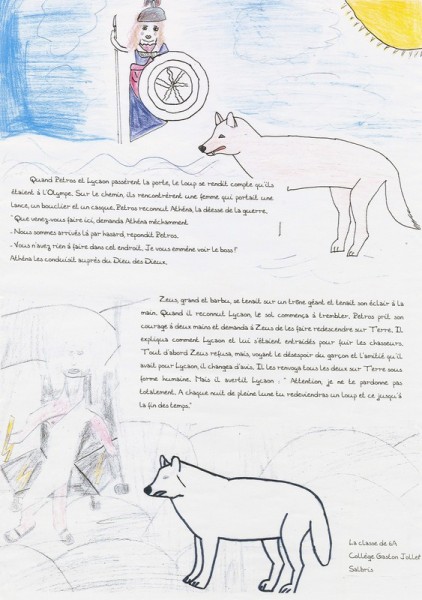 Quand Petros et Lycaon passèrent la porte, le loup se rendit compte qu'ils
étaient à L'Olympe. Sur le chemin, ils rencontrèrent une femme qui portait une
lance, un bouclier et un casque. Petros reconnut Athéna, la déesse de la guerre.
" Que venez-vous faire ici, demanda Athéna méchamment.
- Nous sommes arrivés là par hasard, répondit Petros.
- Vous n'avez rien à faire dans cet endroit. Je vous emmène voir le boss!
Athéna les conduisit auprès du Dieu des Dieux.
Zeus, grand et barbu, se tenait sur un trône géant et tenait son éclair à la
main. Quand il reconnut Lycaon, le sol commença à trembler. Petros prit son
courage à deux mains et demanda à Zeus de les faire redescendre sur Terre. Il
expliqua comment Lycaon et lui s'étaient entraidés pour fuir les chasseurs.
Tout d'abord Zeus refusa, mais, voyant le désespoir du garçon et l'amitié qu'il
avait pour Lycaon, il changea d'avis. Il les renvoya tous les deux sur Terre sous
forme humaine. Mais il avertit Lycaon : " Attention, je ne te pardonne pas
totalement. A chaque nuit de pleine lune tu redeviendras un loup et ce jusqu'à
la fin des temps."
La classe de 6A
Collège Gaston Jollet
Salbris